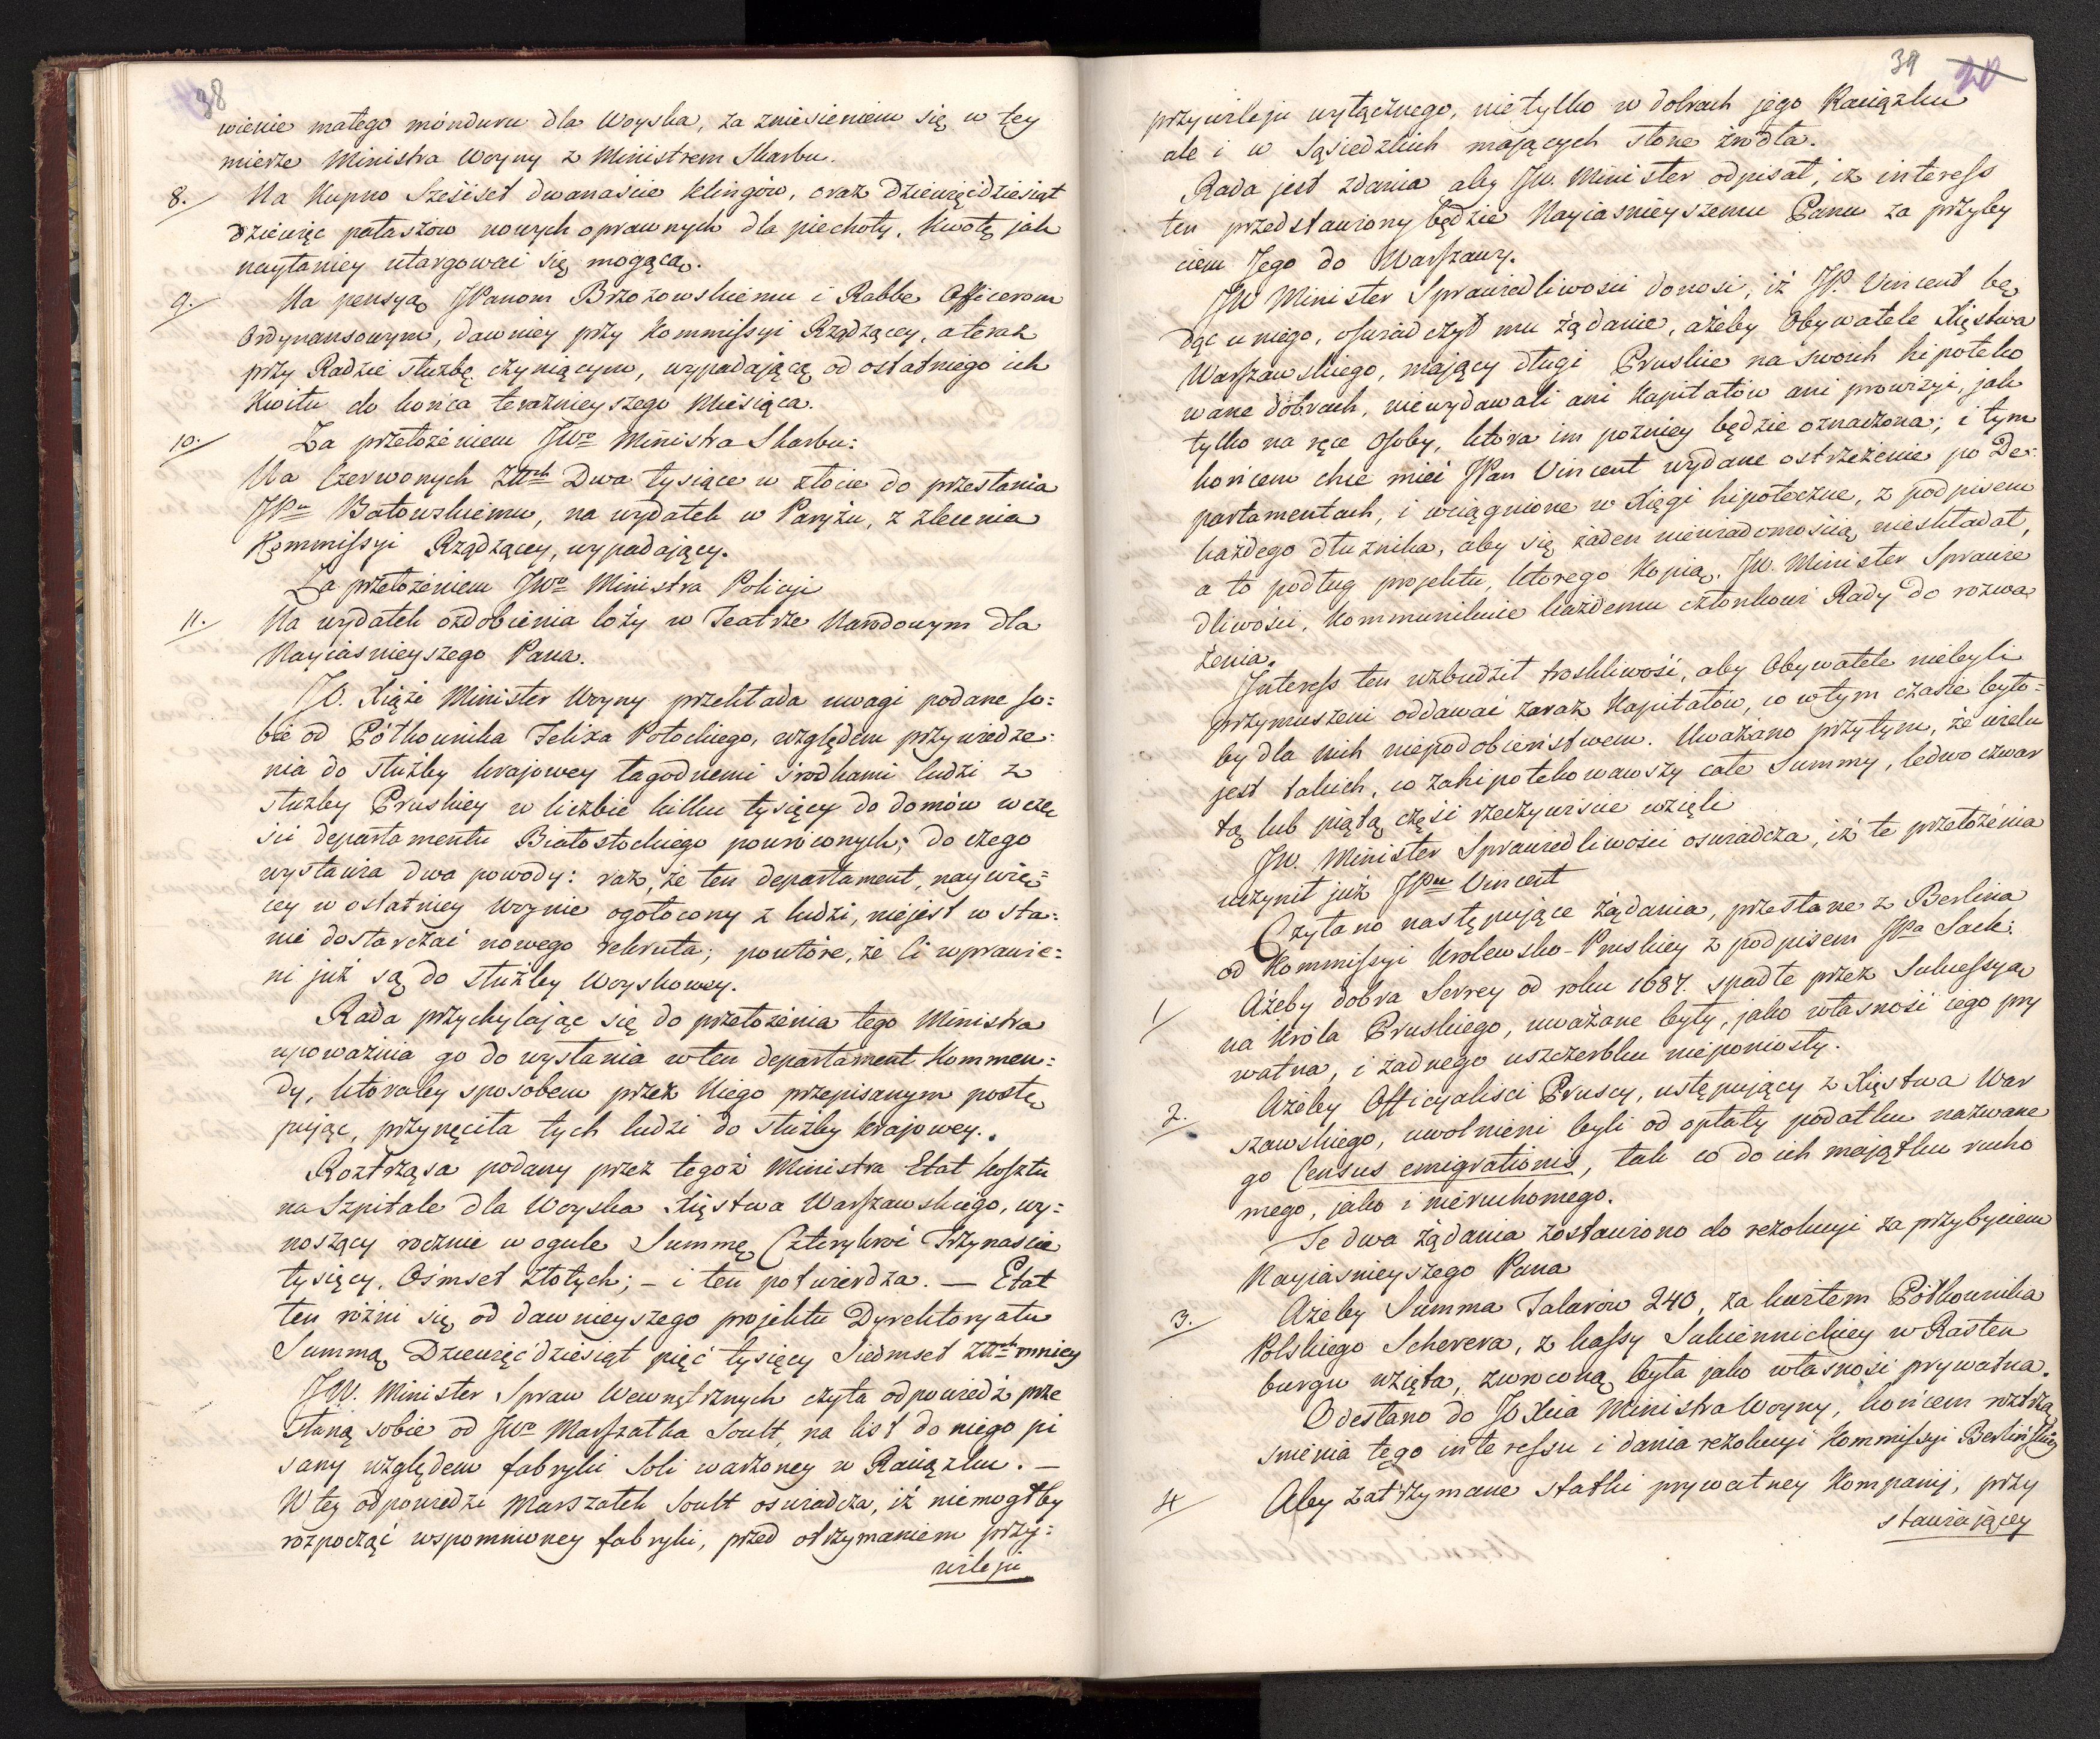 38
wienie małego mónduru dla Woyska, za zniesieniem się w tey
mierze Ministra Woyny z Ministrem Skarbu.
8. Na Kupno Sześćset dwanaście klingów, oraz dziewięćdziesiąt
dziewięć pałaszów nowych oprawnych dla piechoty, Kwotę jak
naytaniey utargować się mogącą.
9. Na pensyą JPanom Brzozowskiemu i Rabbe Officerom
Ordynansowym, dawniey przy Kommissyi Rządzącey, a teraz
przy Radzie służbę czyniącym, wypadającą od ostatniego ich
Kwitu do końca teraznieyszego Miesiąca.
10. Za przełożeniem JWo Ministra Skarbu:
Na Czerwonych Złtch Dwa tysiące w złocie do przesłania
JPu Batowskiemu, na wydatek w Paryżu, z zlecenia
Kommissyi Rządzącey, wypadający.
Za przełożeniem JWo Ministra Policyi
11. Na wydatek ozdobienia loży w Teatrze Narodowym dla
Nayiaśnieyszego Pana.
JO. Xiąże Minister Woyny przekłada uwagi podane so=
bie od Półkownika Felixa Potockiego, względem przywiedze=
nia do służby krajowey łagodnemi środkami ludzi z
służby Pruskiey w liczbie kilku tysięcy do domów w czę
ści departamentu Białostockiego powróconych; do czego
wystawia dwa powody: raz, że ten departament, naywię=
cey w ostatniey woynie ogołocony z ludzi, niejest w sta=
nie dostarczać nowego rekruta; powtóre, że Ci wprawie=
ni już są do służby Woyskowey.
Rada przychylając się do przełożenia tego Ministra
upoważnia go do wysłania w ten departament Kommen=
dy, któraby sposobem przez Niego przepisanym postę
pując, przynęciła tych ludzi do służby krajowey.
Roztrząsa podany przez tegoż Ministra Etat kosztu
na Szpitale dla Woyska Xięstwa Warszawskiego, wy=
noszący rocznie w ogule Summę Czterykroć Trzynaście
tysięcy, Ośmset złotych; – i ten potwierdza. — Etat
ten różni się od dawnieyszego projektu Dyrektoryatu
Summą Dziewięćdziesiąt pięć tysięcy Siedmset Złtch mniey
JW. Minister Spraw Wewnętrznych czyta odpowiedź prze
słaną sobie od JWo Marszałka Soult, na list do niego pi
sany względem fabryki Soli warzoney w Raciązku. —
W tey odpowiedzi Marszałek Soult oświadcza, iż niemogłby
rozpocząć wspomnioney fabryki, przed otrzymaniem przy=
wileju
39 20
przywileju wyłącznego, nietylko w dobrach jego Raciązku
ale i w Sąsiedzkich mających słone źródła.
Rada jest zdania aby JW. Minister odpisał, iż interess
ten przedstawiony będzie Nayiaśnieyszemu Panu za przyby
ciem Jego do Warszawy.
JW Minister Sprawiedliwości donosi, iż JP. Vincent bę
dąc u niego, oświadczył mu żądanie, ażeby Obywatele Xięstwa
Warszawskiego, mający długi Pruskie na swoich hipoteko
wane dobrach, niewydawali ani Kapitałów ani prowizyi, jak
tylko na ręce Osoby, która im pozniey będzie oznaczona; i tym
końcem chce mieć JPan Vincent wydane ostrzeżenie po De=
partamentach, i wciągnione w Xięgi hipoteczne, z podpisem
każdego dłużnika, aby się żaden niewiadomością nieskładał,
a to podług projektu, którego Kopią, JW. Minister Sprawie
dliwości, Kommunikuie każdemu członkowi Rady do rozwa
żenia.
Interess ten wzbudził troskliwość, aby Obywatele niebyli
przymuszeni oddawać zaraz Kapitałów, co w tym czasie było=
by dla nich niepodobieństwem. Uważano przytym, że wielu
jest takich, co zahipotekowawszy całe Summy, ledwo czwar
tą lub piątą część rzeczywiście wzięli
JW. Minister Sprawiedliwości oświadcza, iż te przełożenia
uczynił już JPu Vincent
Czytano następujące żądania, przesłane z Berlina
od Kommissyi Krolewsko-Pruskiey z podpisem JPa Sack:
1 Ażeby dobra Serrey od roku 1687. spadłe przez Sukcessyą
na Króla Pruskiego, uważane były, jako własność iego pry
watna, i żadnego uszczerbku nieponiosły.
2. Ażeby Officyaliści Pruscy, ustępujący z Xięstwa War
szawskiego, uwolnieni byli od opłaty podatku nazwane
go Census emigrationis, tak co do ich majątku rucho
mego, jako i nieruchomego.
Te dwa żądania zostawiono do rezolucyi za przybyciem
Nayiaśnieyszego Pana
3. Ażeby Summa Talarów 240, za kwitem Półkownika
Polskiego Scherera, z kassy Sukiennickiey w Rasten
burgu wzięta, zwroconą była jako własność prywatna.
Odesłano do JO Xcia Ministra Woyny, końcem roztrzą
śnienia tego interessu i dania rezolucyi Kommissyi Berlińskiey
4 Aby zatrzymane statki prywatney Kompanij, przy
stawiający